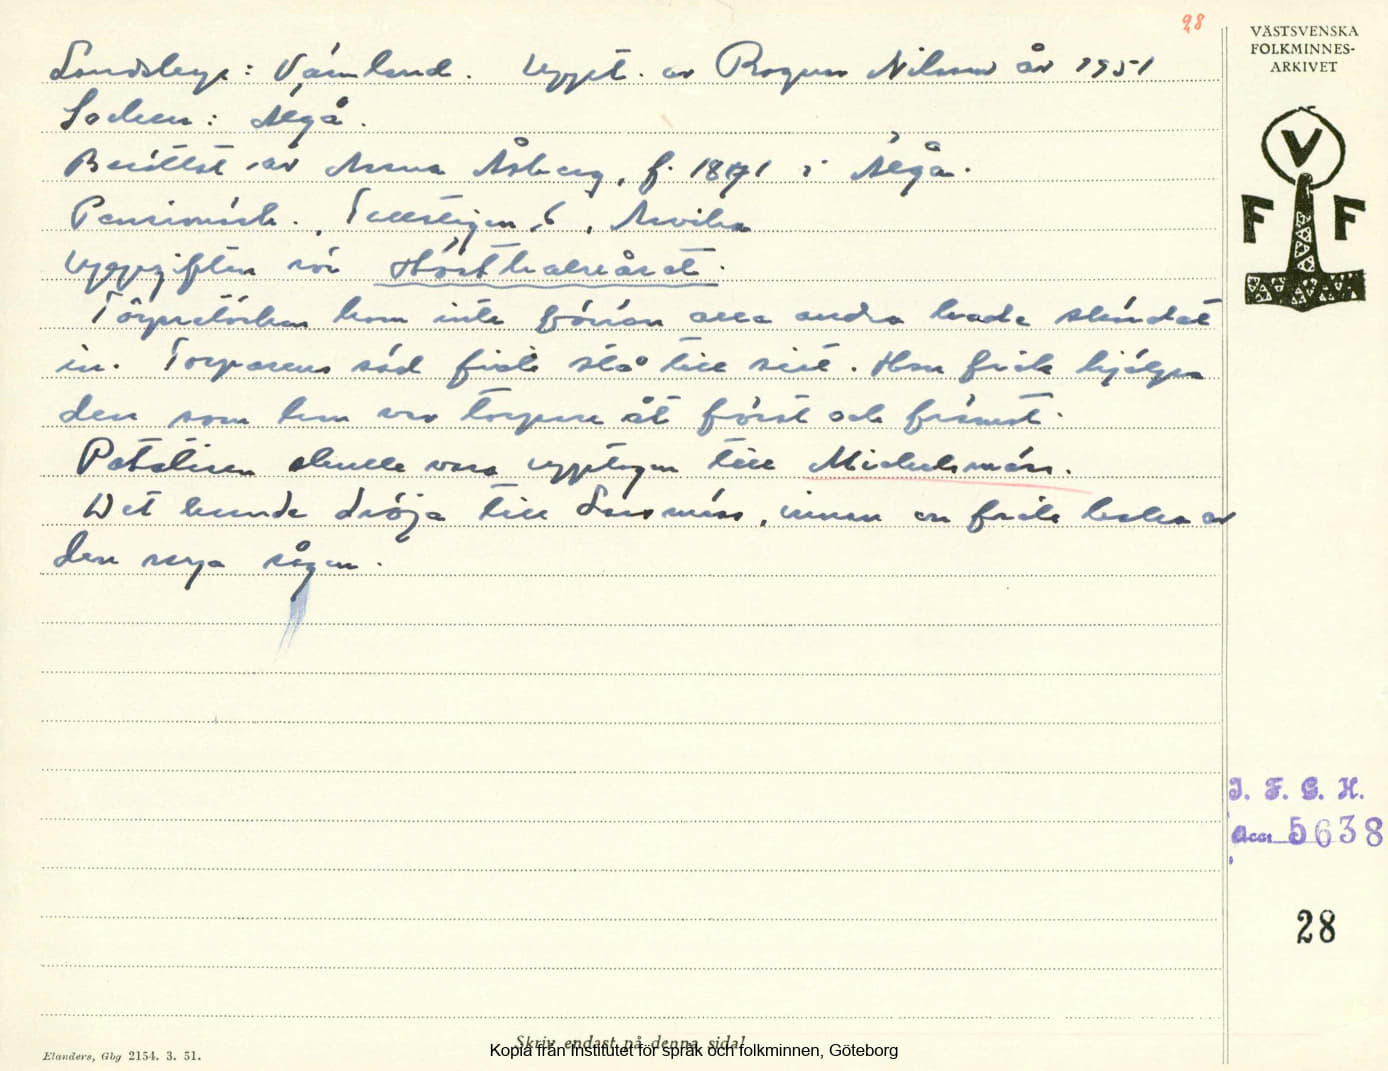 28
VÄSTSVENSKA
FOLKMINNES-
ARKIVET
V
F F
Landskap: Värmland. Uppt. av Ragnar Nilsson år 1951
Socken: Älgå.
Berättat av Anna Åsberg, f. 1871 i Älgå.
Pensionärsh., 6, Arvika
Uppgiften rör Höstkalaset.
kom inte förrän alla andra hade skördat
in. Torparens säd fick stå till sist. Han fick hjälpa
den som han var torpare åt först och främst.
Potatisen skulle vara upptagen till Mickelsmäss.
Det kunde dröja till Larsmäss, innan en fick baka av
den nya rågen.
I. F. G. H.
Acc. 5638
28
Elanders, Gbg 2154. 3. 51.
Skriv endast på denna sida!
Kopia från Institutet för språk och folkminnen, Göteborg